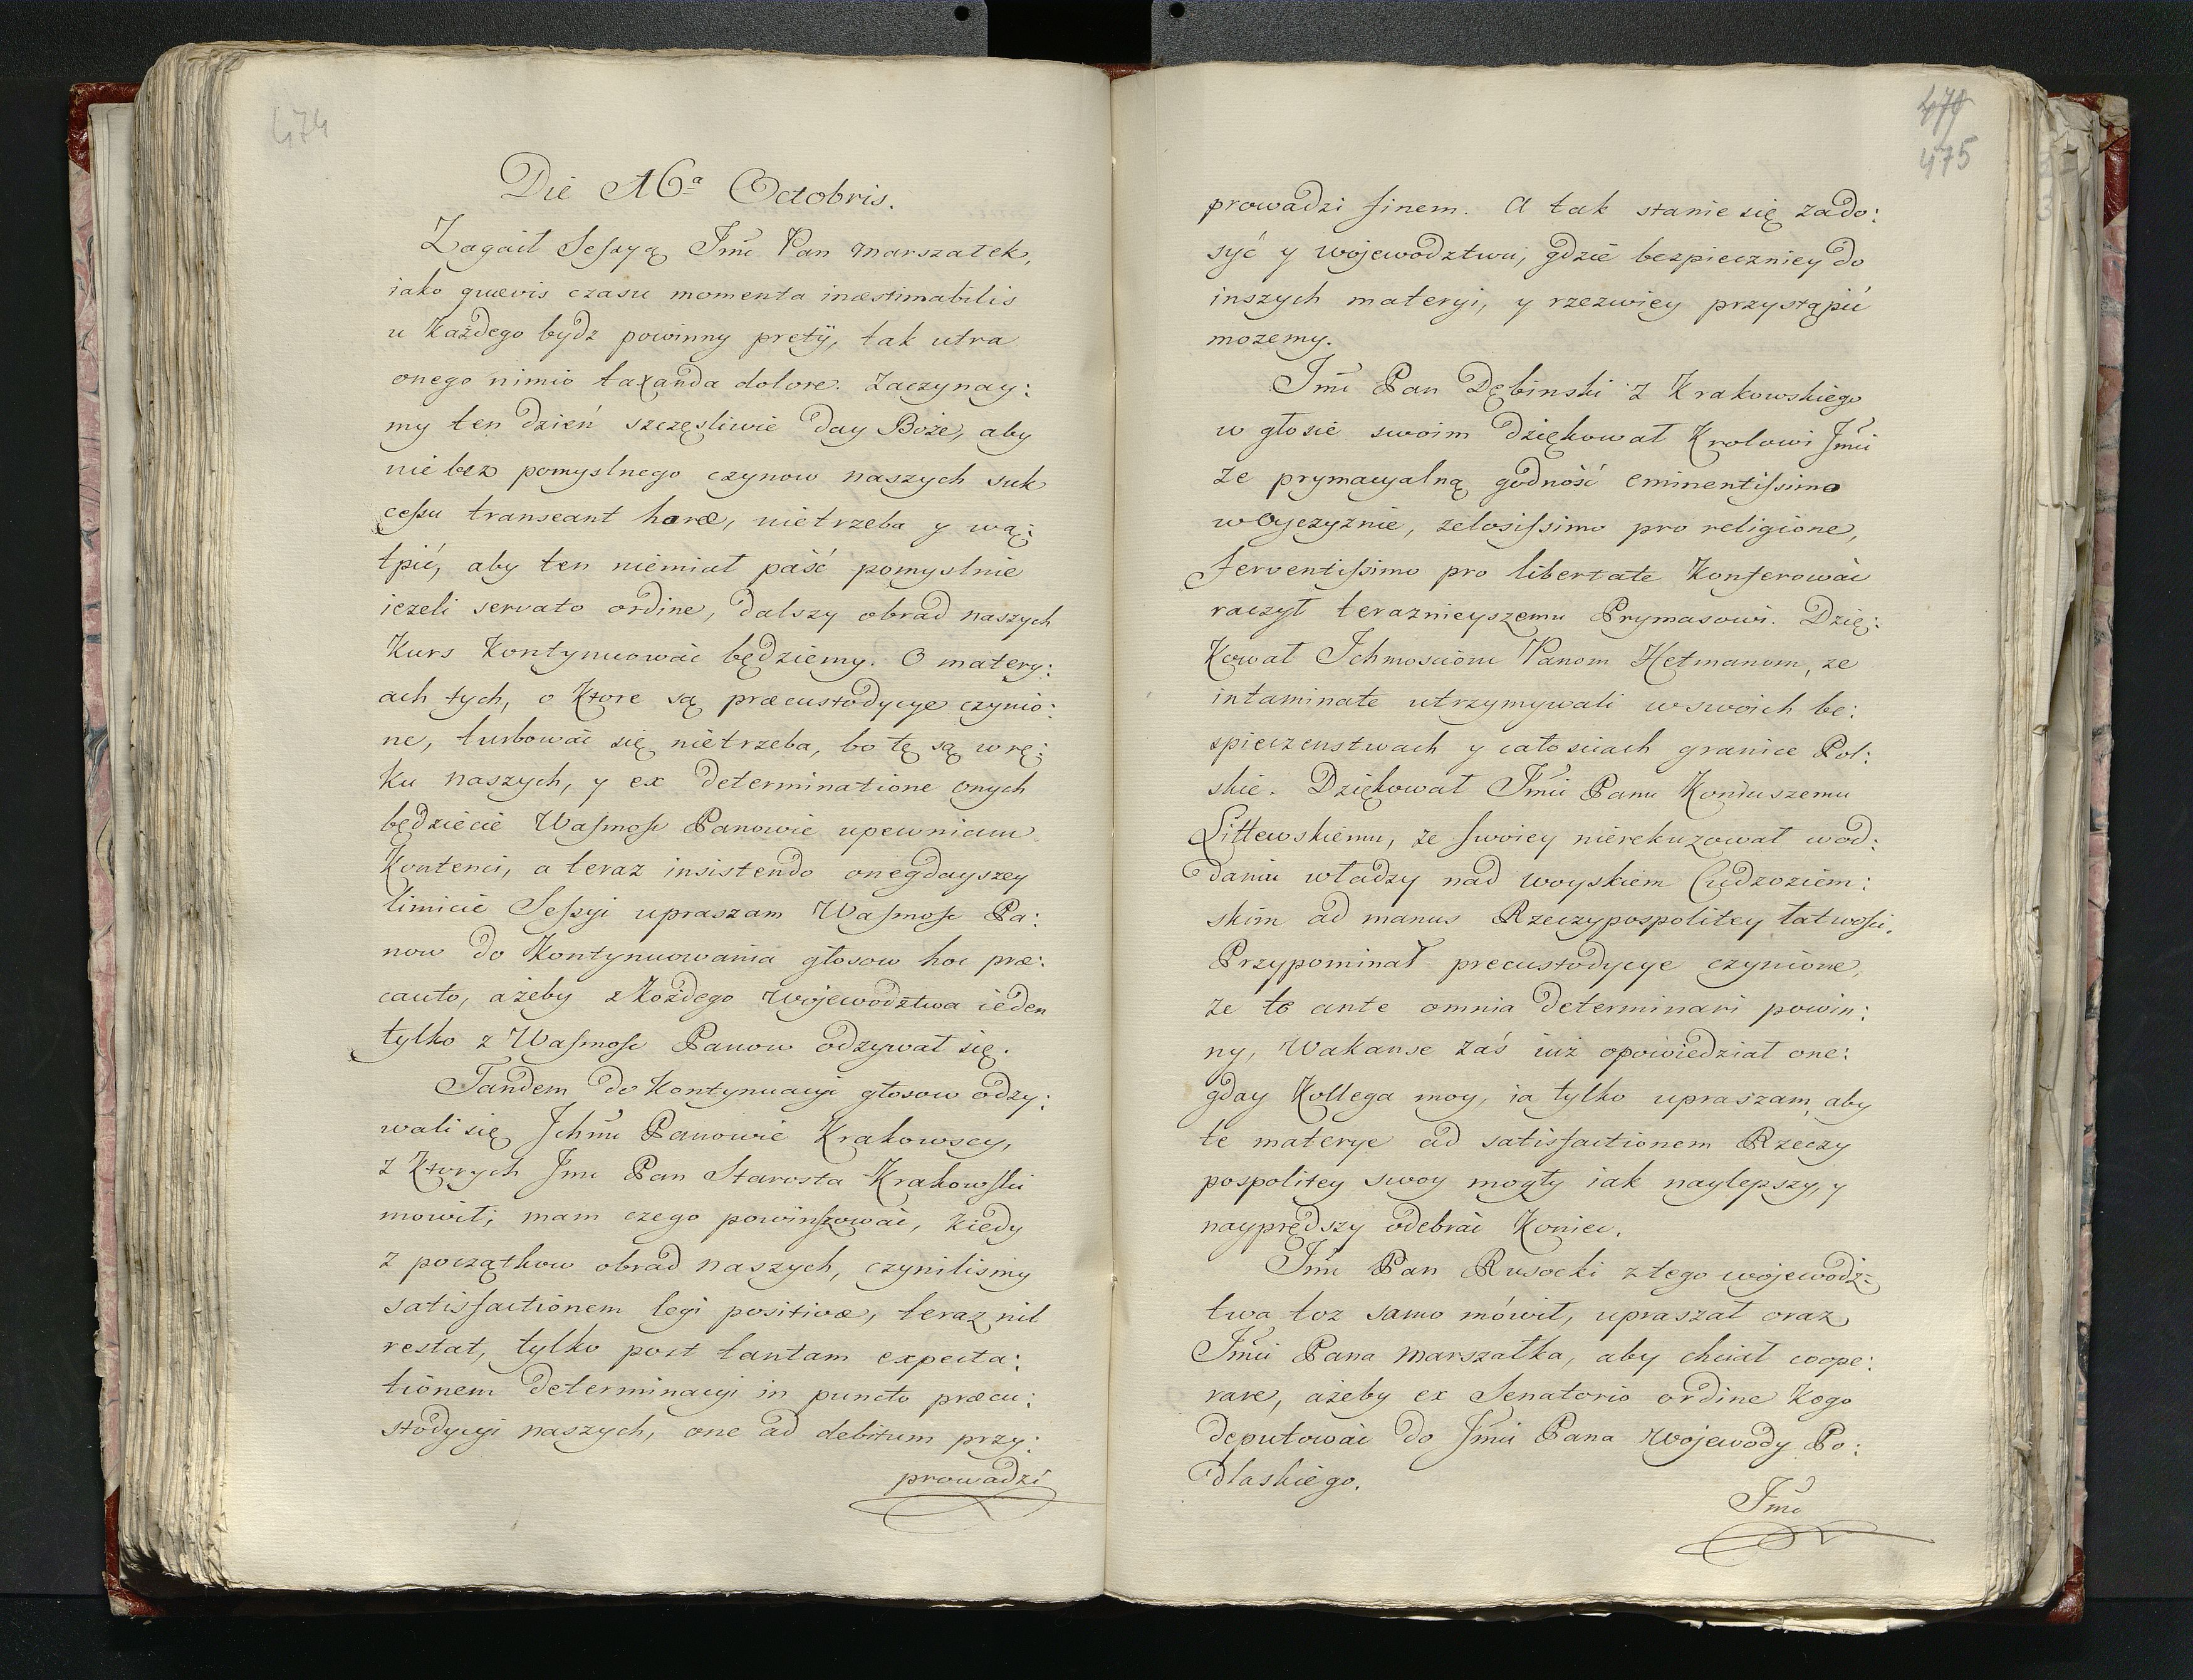 474
Die 16ª Octobris.
Zagaił Sessyą Jmć Pan Marszałek,
iako quævis czasu momenta inæstimabilis
u Każdego bydz powinny pretÿ, tak utra
onego nimio taxanda dolore. Zaczynay:
my ten dzień szczęsliwie day Boże, aby
nie bez pomyslnego czynow naszych suk
cessu transeant horæ, nietrzeba y wą:
tpić, aby ten niemiał paść pomyslnie
ieżeli servato ordine, dalszy obrad naszych
Kurs Kontynuować będziemy. O matery:
ach tych, o Ktore są præcustodycye czynio:
ne, turbować się nietrzeba, bo tę są w rę:
Ku naszych, y ex determinatione onych
będziecie Wasmość Panowie upewniam
Kontenci, a teraz insistendo onegdayszey
limicie Sessyi upraszam Wasmość Pa:
now do Kontynuowania głosow hoc præ:
cauto, ażeby z Każdego Wojewodztwa ieden
tylko z Wasmość Panow odzywał się.
Tandem do Kontynuacyi głosow odzy:
wali się Jchmć Panowie Krakowscy,
z Ktorych Jmć Pan Starosta Krakowski
mowił; mam czego powinszować, Kiedy
z początkow obrad naszych, czynilismy
satisfactionem legi positivæ, teraz nil
restat, tylko post tantam expecta:
tionem determinacyi in puncto præcu:
stodycyi naszych, one ad debitum przy:
prowadzi
470
475
prowadzi finem. A tak stanie się zado:
syć y wojewodztwu, gdzie bezpieczniey do
inszych materyi, y rzezwiey przystąpić
mozemy.
Jmć Pan Dębinski z Krakowskiego
w głosie swoim dziękował Krolowi Jmći
że prymacyalną godność eminentissimo
w Oyczyznie, zelosissimo pro religione,
ferventissimo pro libertate Konferować
raczył teraznieyszemu Prymasowi. Dzię:
Kował Ichmosciom Panom Hetmanom, że
intaminate utrzymywali w swoich be:
spieczenstwach y całosciach granice Pol:
skie. Dziękował Jmći Panu Koniuszemu
Littewskiemu, że swoiey nierekuzował w od:
daniu władzy nad woyskiem Cudzoziem:
skim ad manus Rzeczypospolitey łatwości.
Przypominał precustodycye czynione,
że te ante omnia determinari powin:
ny, Wakanse zaś iuż opowiedział one:
gday Kollega moy, ia tylko upraszam, aby
te materye ad satisfactionem Rzeczy
pospolitey swoy mogły iak naylepszy, y
nayprędszy odebrać Koniec.
Jmć Pan Rusocki z tego wojewodz:
twa toz samo mówił, upraszał oraz
Jmći Pana Marszałka, aby chciał coope:
rare, ażeby ex Senatorio ordine Kogo
deputować do Jmći Pana Wojewody Po:
dlaskiego.
Jmć